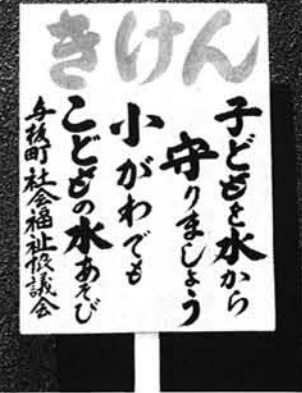 きけん
子どもを水から
守りましょう
小がわでも
こどもの水あそび
与板町社会福祉協議会